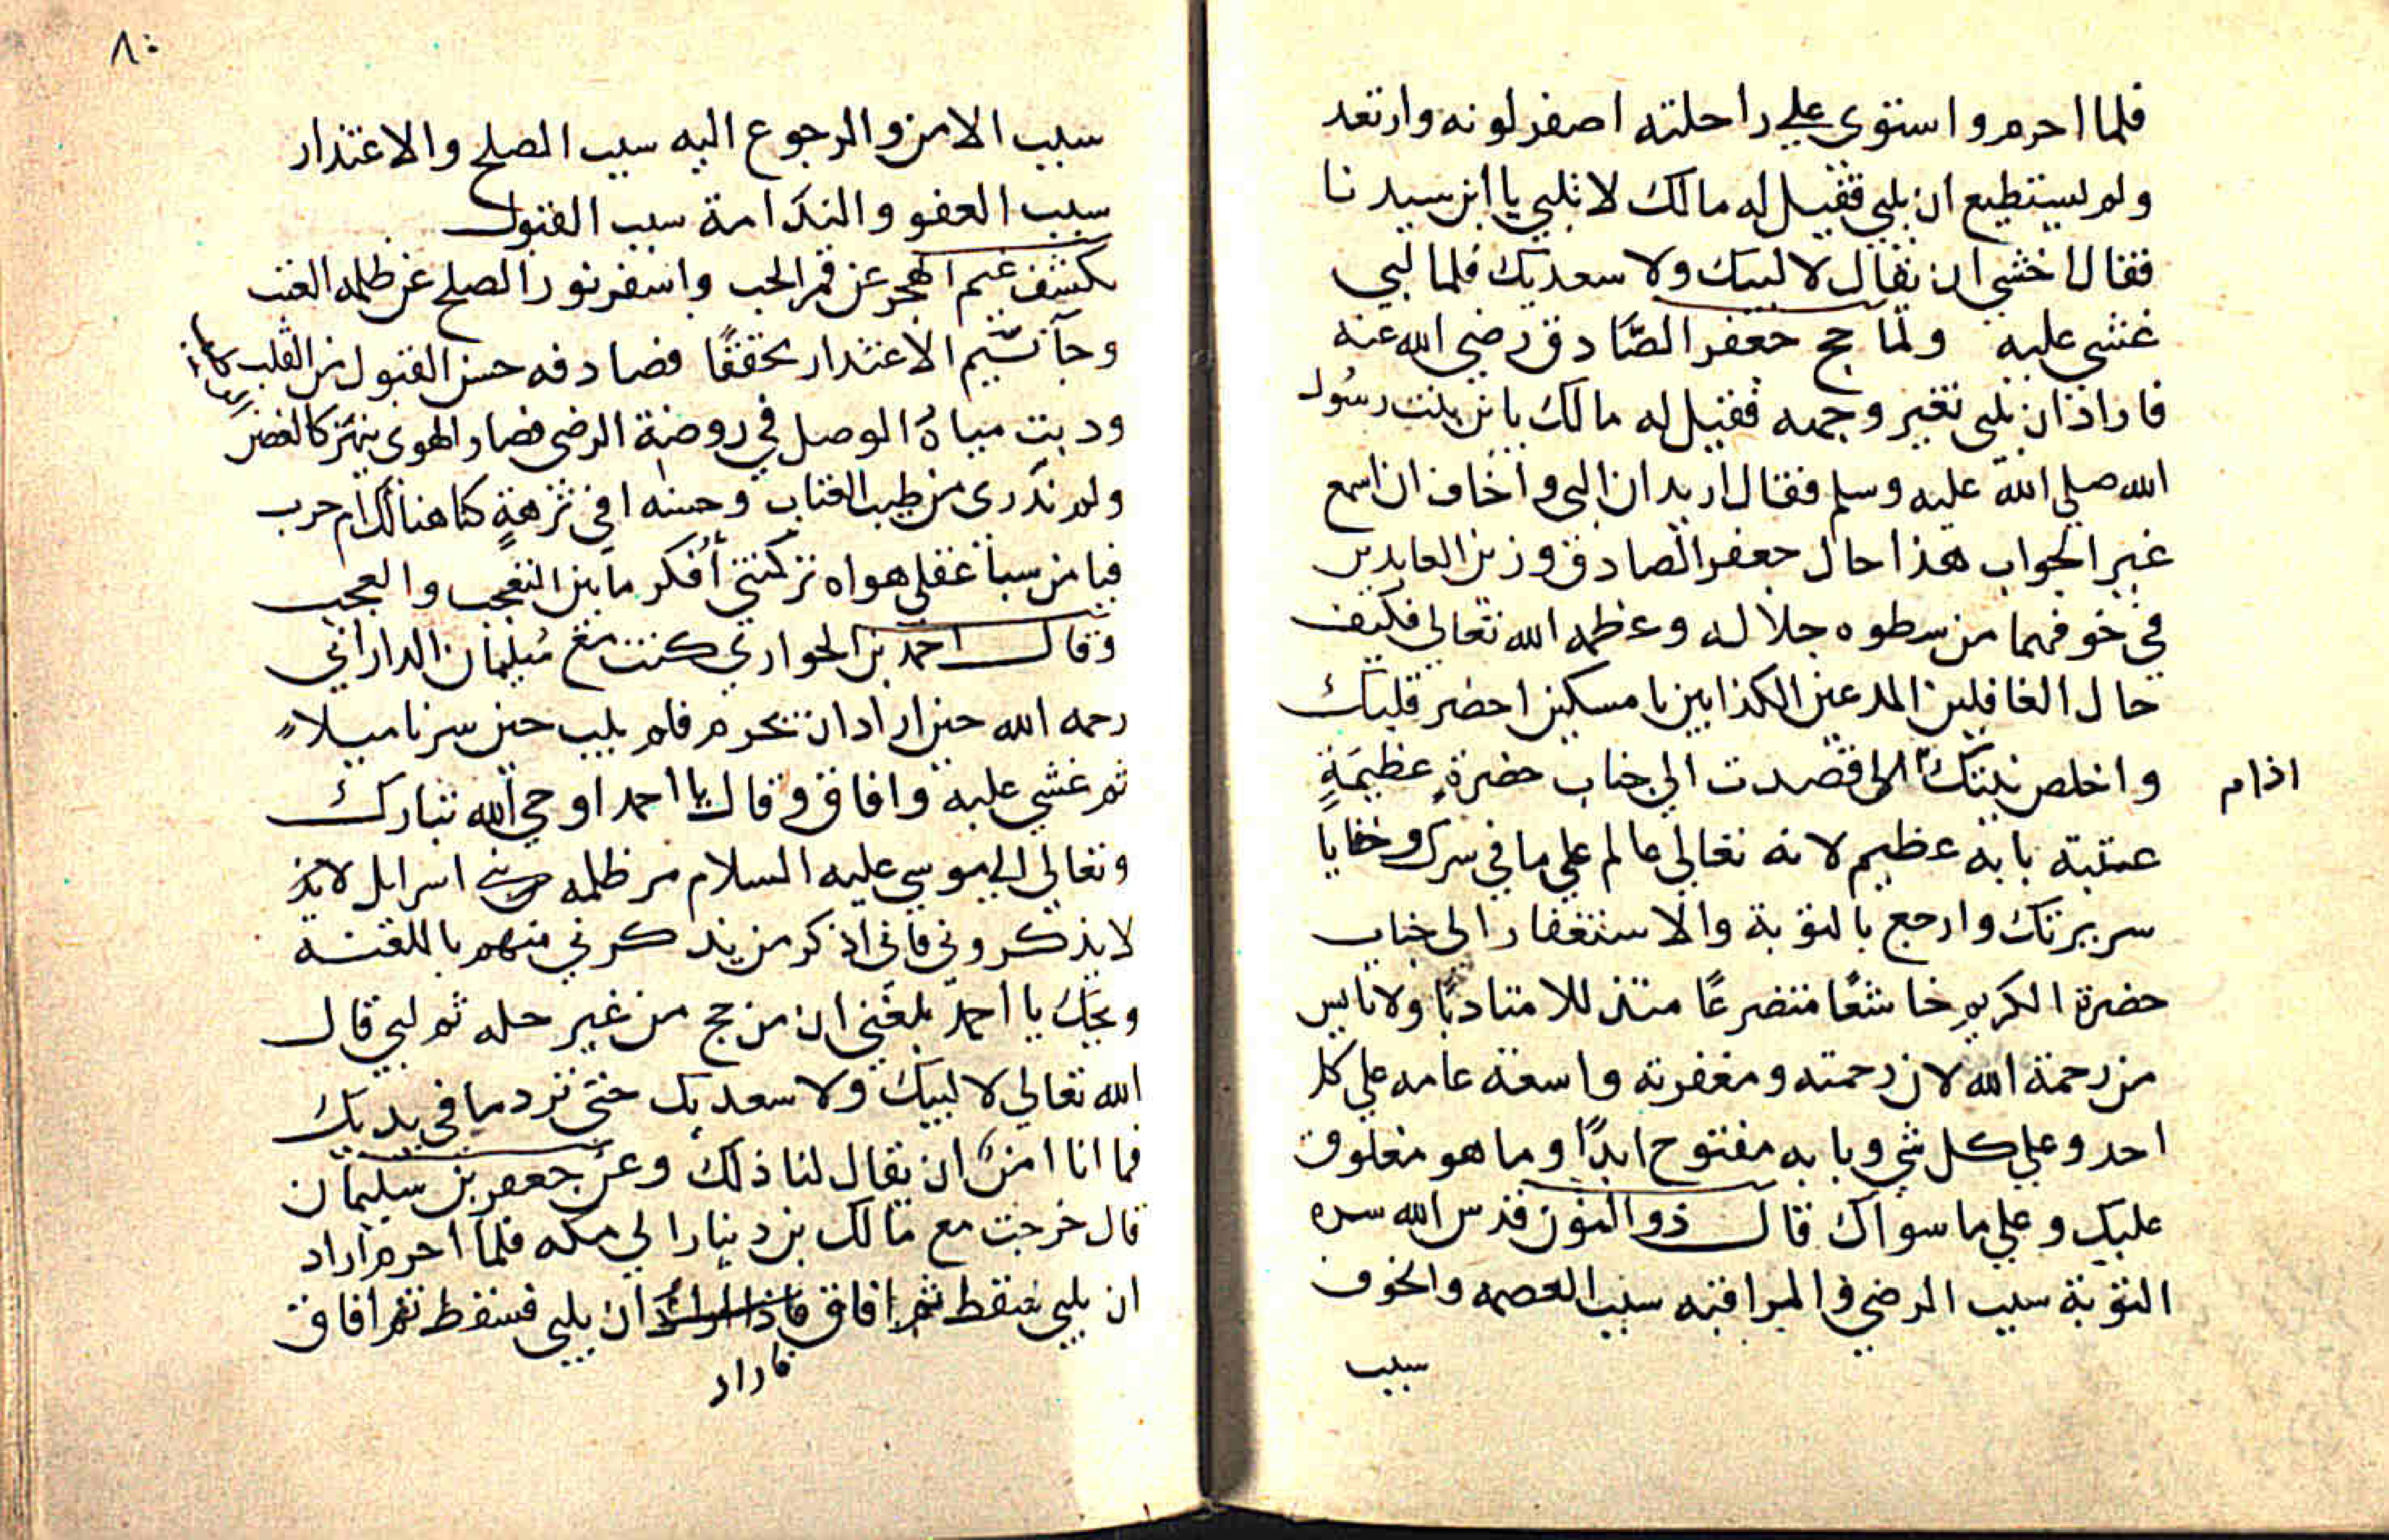 فلما احرم واستوى على راحلته اصفر لونه وارتعد
ولم يستطيع ان يلبي فقيل له مالك لا تلبي يا ابن سيدنا
فقال اخشى ان يقال لا لبيك ولا سعديك فلما لبي
غشي عليه ولما حج جعفر الصادق رضي الله عنه
فاراد ان يلبي تغير وجهه فقيل له مالك يا بن بنت رسول
الله صلي الله عليه وسلم فقال اريد ان البي واخاف ان اسمع
غير الجواب هذا حال جعفر الصادق وزين العابدين
في خوفهما من سطوه جلاله وعظمه الله تعالى فكيف
حال الغافلين المدعين الكذابين يا مسكين احضر قلبك
واخلص نيتك الى قصدت الي جناب حضرة عظيمة
اذا م
عتبة بابه عظيم لانه تعالى عالم علي ما في سرك وخفايا
سريرتك وارجع بالتوبة والاستغفار الى جناب
حضرة الكريم خاشعًا متضرعًا متذللا متادبًا ولا تايس
من رحمة الله لان رحمته ومغفرته واسعة عامه علي كل
احد وعلي كل شي وبابه مفتوح ابدًا وما هو مغلوق
عليك وعلي ما سواك قال ذو النون قدس الله سره
التوبة سبب الرضي والمراقبه سبب العصمه والخوف
سبب
٨٠
سبب الامن والرجوع اليه سبب الصلح والاعتذار
سبب العفو والندامة سبب القبول
تكشف غيم الهجر عن قمر الحب واسفر نور الصلح عن ظلمه العتب
وجا نسيم الاعتذار محققًا فصادفه حسن القبول من القلب
ودبت مياهُ الوصل في روضة الرضى فصار الهوى يهتز كالغصن
ولم ندرى من طيب العتاب وحسنه افي نزهةٍ كنا هنالك ام حرب
فيا من سبا عقلي هواه تركتني أفكر ما بين التعجب والعجب
وقال احمد بن الحواري كنت مع سليمان الداراني
رحمه الله حين اراد ان يحرم فلم يلب حين سرنا ميلا
ثم غشي عليه وافاق وقال يا احمد اوحي الله تبارك
وتعالي الي موسي عليه السلام مر ظلمه بني اسرايل لا
لا يذكروني فاني اذكر من يذكرني منهم باللعنة
ويحك يا احمد بلغني ان من حج من غير حله ثم لبي قال
الله تعالي لا لبيك ولا سعديك حتى ترد ما في يديك
فما انا امن ان يقال لنا ذلك وعن جعفر بن سليمان
قال خرجت مع مالك بن دينار الي مكه فلما احرم اراد
ان يلبي فسقط ثم افاق فاذا اراد ان يلبي فسقط ثم افاق
فاراد